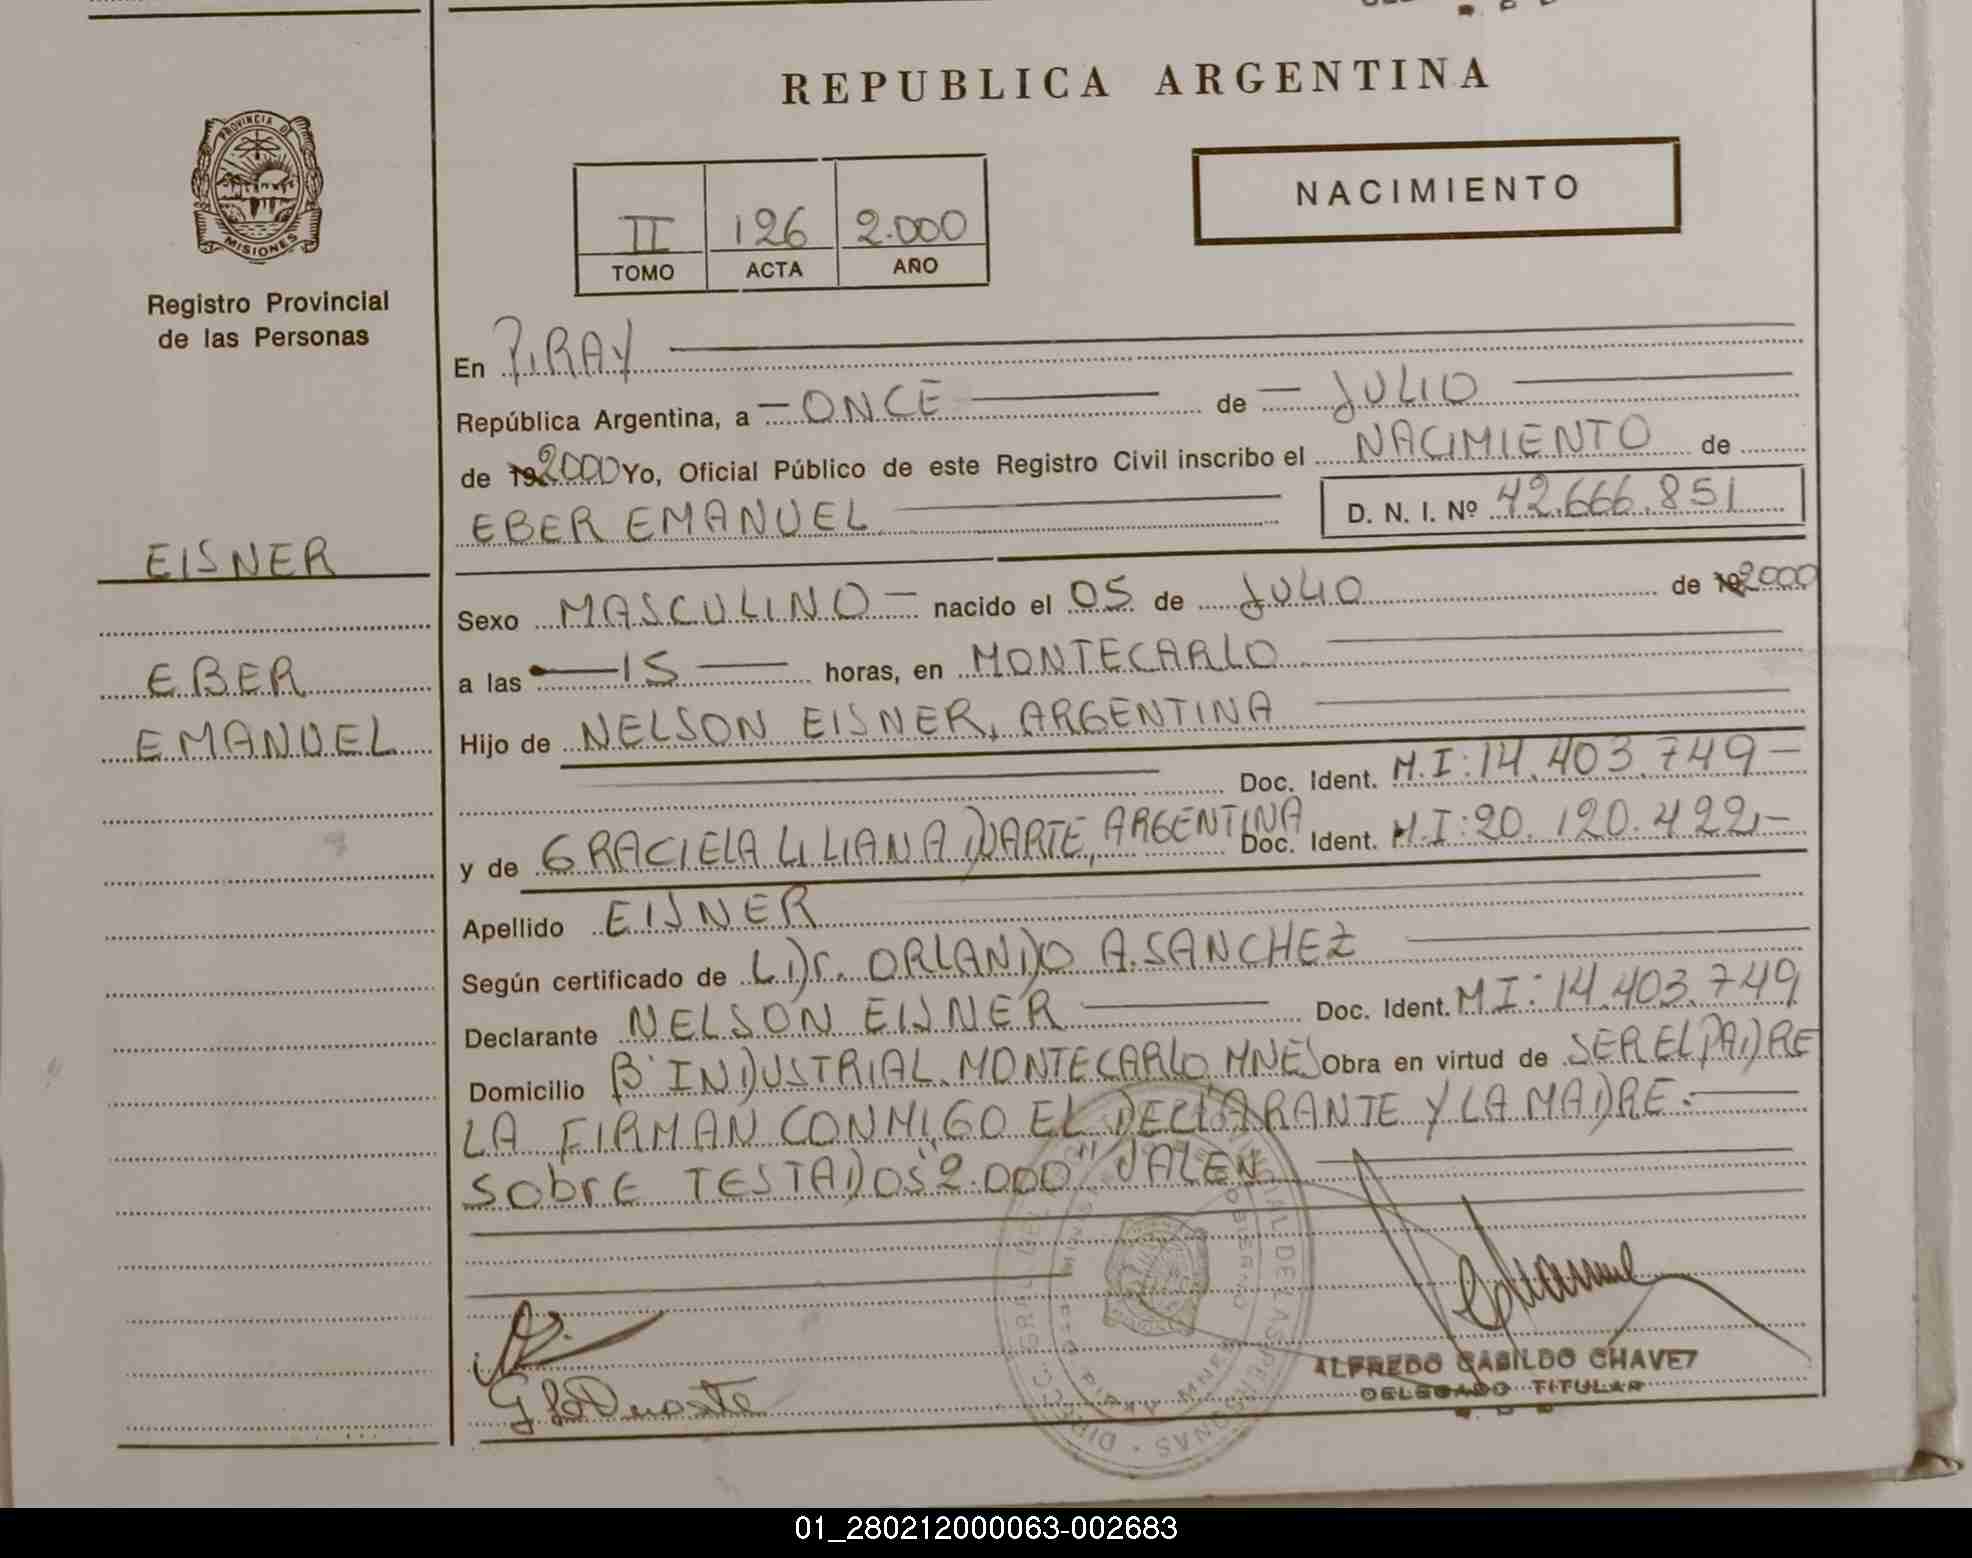 REPUBLICA ARGENTINA
PROVINCIA DE
MISIONES
Registro Provincial
de las Personas
NACIMIENTO
II 126 2.000
TOMO ACTA AÑO
En PIRAY
República Argentina, a - ONCE de - JULIO
de 192000 Yo, Oficial Público de este Registro Civil inscribo el NACIMIENTO de
EBER EMANUEL D. N. I. Nº 42.666.851
EISNER
EBER
EMANUEL
Sexo MASCULINO - nacido el 05 de JULIO de 192000
a las 15 horas, en MONTECARLO
Hijo de NELSON EISNER, ARGENTINA
Doc. Ident. M.I: 14.403.749 -
y de GRACIELA LILIANA DUARTE, ARGENTINA Doc. Ident. M.I: 20.120.422.-
Apellido EISNER
Según certificado de L Dr. ORLANDO A. SANCHEZ
Declarante NELSON EISNER Doc. Ident. M I: 14.403.749
Domicilio Bº INDUSTRIAL. MONTECARLO MNES Obra en virtud de SER EL PADRE
LA FIRMAN CONMIGO EL DECLARANTE Y LA MADRE.
SObrE TESTADOS "2.000" VALEN
G L Duarte
ALFREDO CABILDO CHAVEZ
DELEGADO TITULAR
01_280212000063-002683